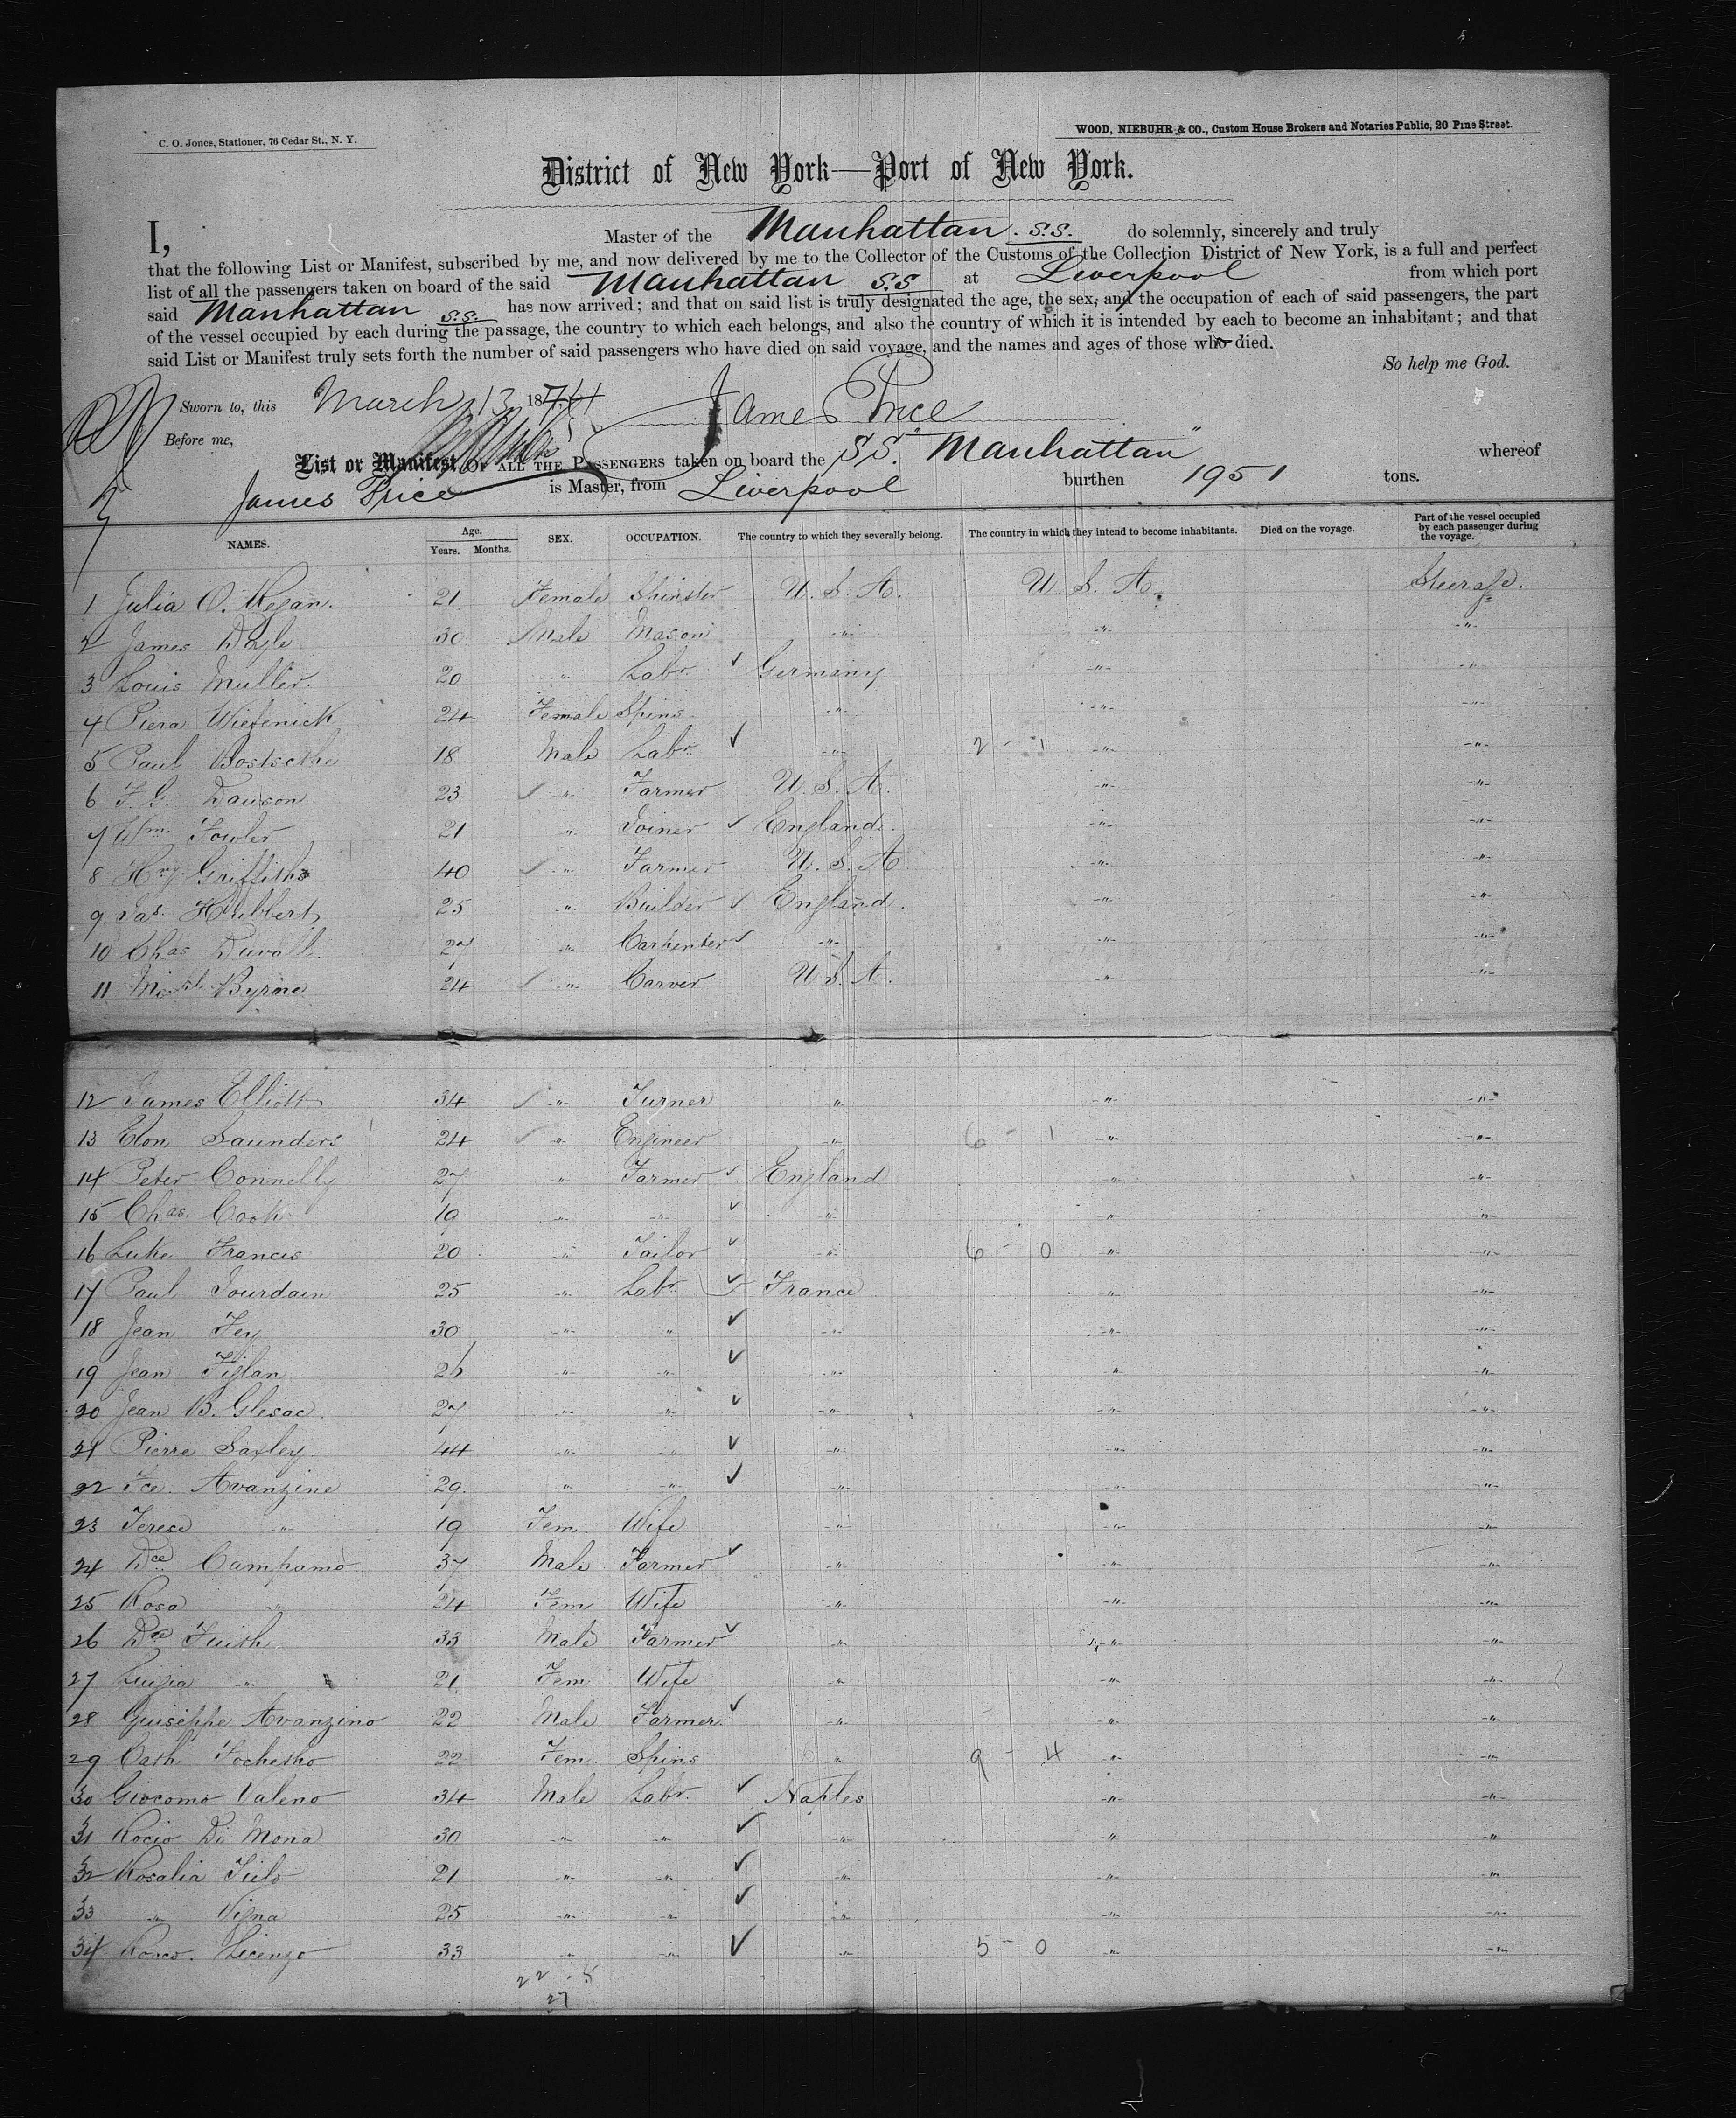 C. O. Jones, Stationer, 76 Cedar St., N. Y.
WOOD, NIEBUHR & CO., Custom House Brokers and Notaries Public, 20 Pine Street.
District of New York—Port of New York.
I, Master of the Manhattan S.S. do solemnly, sincerely and truly
that the following List or Manifest, subscribed by me, and now delivered by me to the Collector of the Customs of the Collection District of New York, is a full and perfect
list of all the passengers taken on board of the said Manhattan S.S at Liverpool from which port
said Manhattan S.S. has now arrived; and that on said list is truly designated the age, the sex, and the occupation of each of said passengers, the part
of the vessel occupied by each during the passage, the country to which each belongs, and also the country of which it is intended by each to become an inhabitant; and that
said List or Manifest truly sets forth the number of said passengers who have died on said voyage, and the names and ages of those who died.
So help me God.
Sworn to, this March 13 187
James Price
Before me,
List or Manifest OF ALL THE PASSENGERS taken on board the S.S. "Manhattan" whereof
James Price is Master, from Liverpool burthen 1951 tons.
NAMES. Age. Years. Months. SEX. OCCUPATION. The country to which they severally belong. The country in which they intend to become inhabitants. Died on the voyage. Part of the vessel occupied by each passenger during the voyage.
1 Julia O. Regan. 21 Female Spinster U. S. A. U. S. A. Steerage.
2 James Doyle 30 Male Mason -"- -"- -"-
3 Louis Muller. 20 -"- Labr. Germany -"- -"-
4 Piera Wiefenick 24 Female Spins -"- -"- -"-
5 Paul 18 Male Labr. -"- 2 - 1 -"- -"-
6 F. G. Dawson 23 -"- Farmer U. S. A. -"- -"-
7 Wm. Fowler 21 -"- Joiner England. -"- -"-
8 Hry. Griffiths 40 -"- Farmer U. S. A -"- -"-
9 Jas. Hubbert 25 -"- Builder England. -"- -"-
10 Chas Duvall. 27 -"- Carpenter -"- -"- -"-
11 Michl. Byrne 24 -"- Carver U. S. A. -"- -"-
12 James Elliott 34 -"- Turner -"- -"- -"-
13 Saunders 24 -"- Engineer -"- 6 - 1 -"- -"-
14 Peter Connelly 27 -"- Farmer England -"- -"-
15 Chas. Cook 19 -"- -"- -"- -"- -"-
16 Luke Francis 20 -"- Tailor -"- 6 - 0 -"- -"-
17 Paul Jourdain 25 -"- Labr. France -"- -"-
18 Jean Fey 30 -"- -"- -"- -"- -"-
19 Jean 26 -"- -"- -"- -"- -"-
20 Jean B. Glesac. 27 -"- -"- -"- -"- -"-
21 Pierre Saxley 44 -"- -"- -"- -"- -"-
22 Fce. Avanzine 29. -"- -"- -"- -"- -"-
23 Terese -"- 19 Fem. Wife -"- -"- -"-
24 Dce Campamo 37 Male Farmer -"- -"- -"-
25 Rosa -"- 24 Fem Wife -"- -"- -"-
26 Dce 33 Male Farmer -"- -"- -"-
27 Luigia -"- 21 Fem Wife -"- -"- -"-
28 Guiseppe Avanzino 22 Male Farmer. -"- -"- -"-
29 Cath 22 Fem. Spins -"- 9 - 4 -"- -"-
30 Giocomo Valeno 34 Male Labr. Naples -"- -"-
31 Rocio Di Mona 30 -"- -"- -"- -"- -"-
32 Rosalia 21 -"- -"- -"- -"- -"-
33 -"- Vigna 25 -"- -"- -"- -"- -"-
34 33 -"- -"- -"- 5 - 0 -"- -"-
22 - 5
27